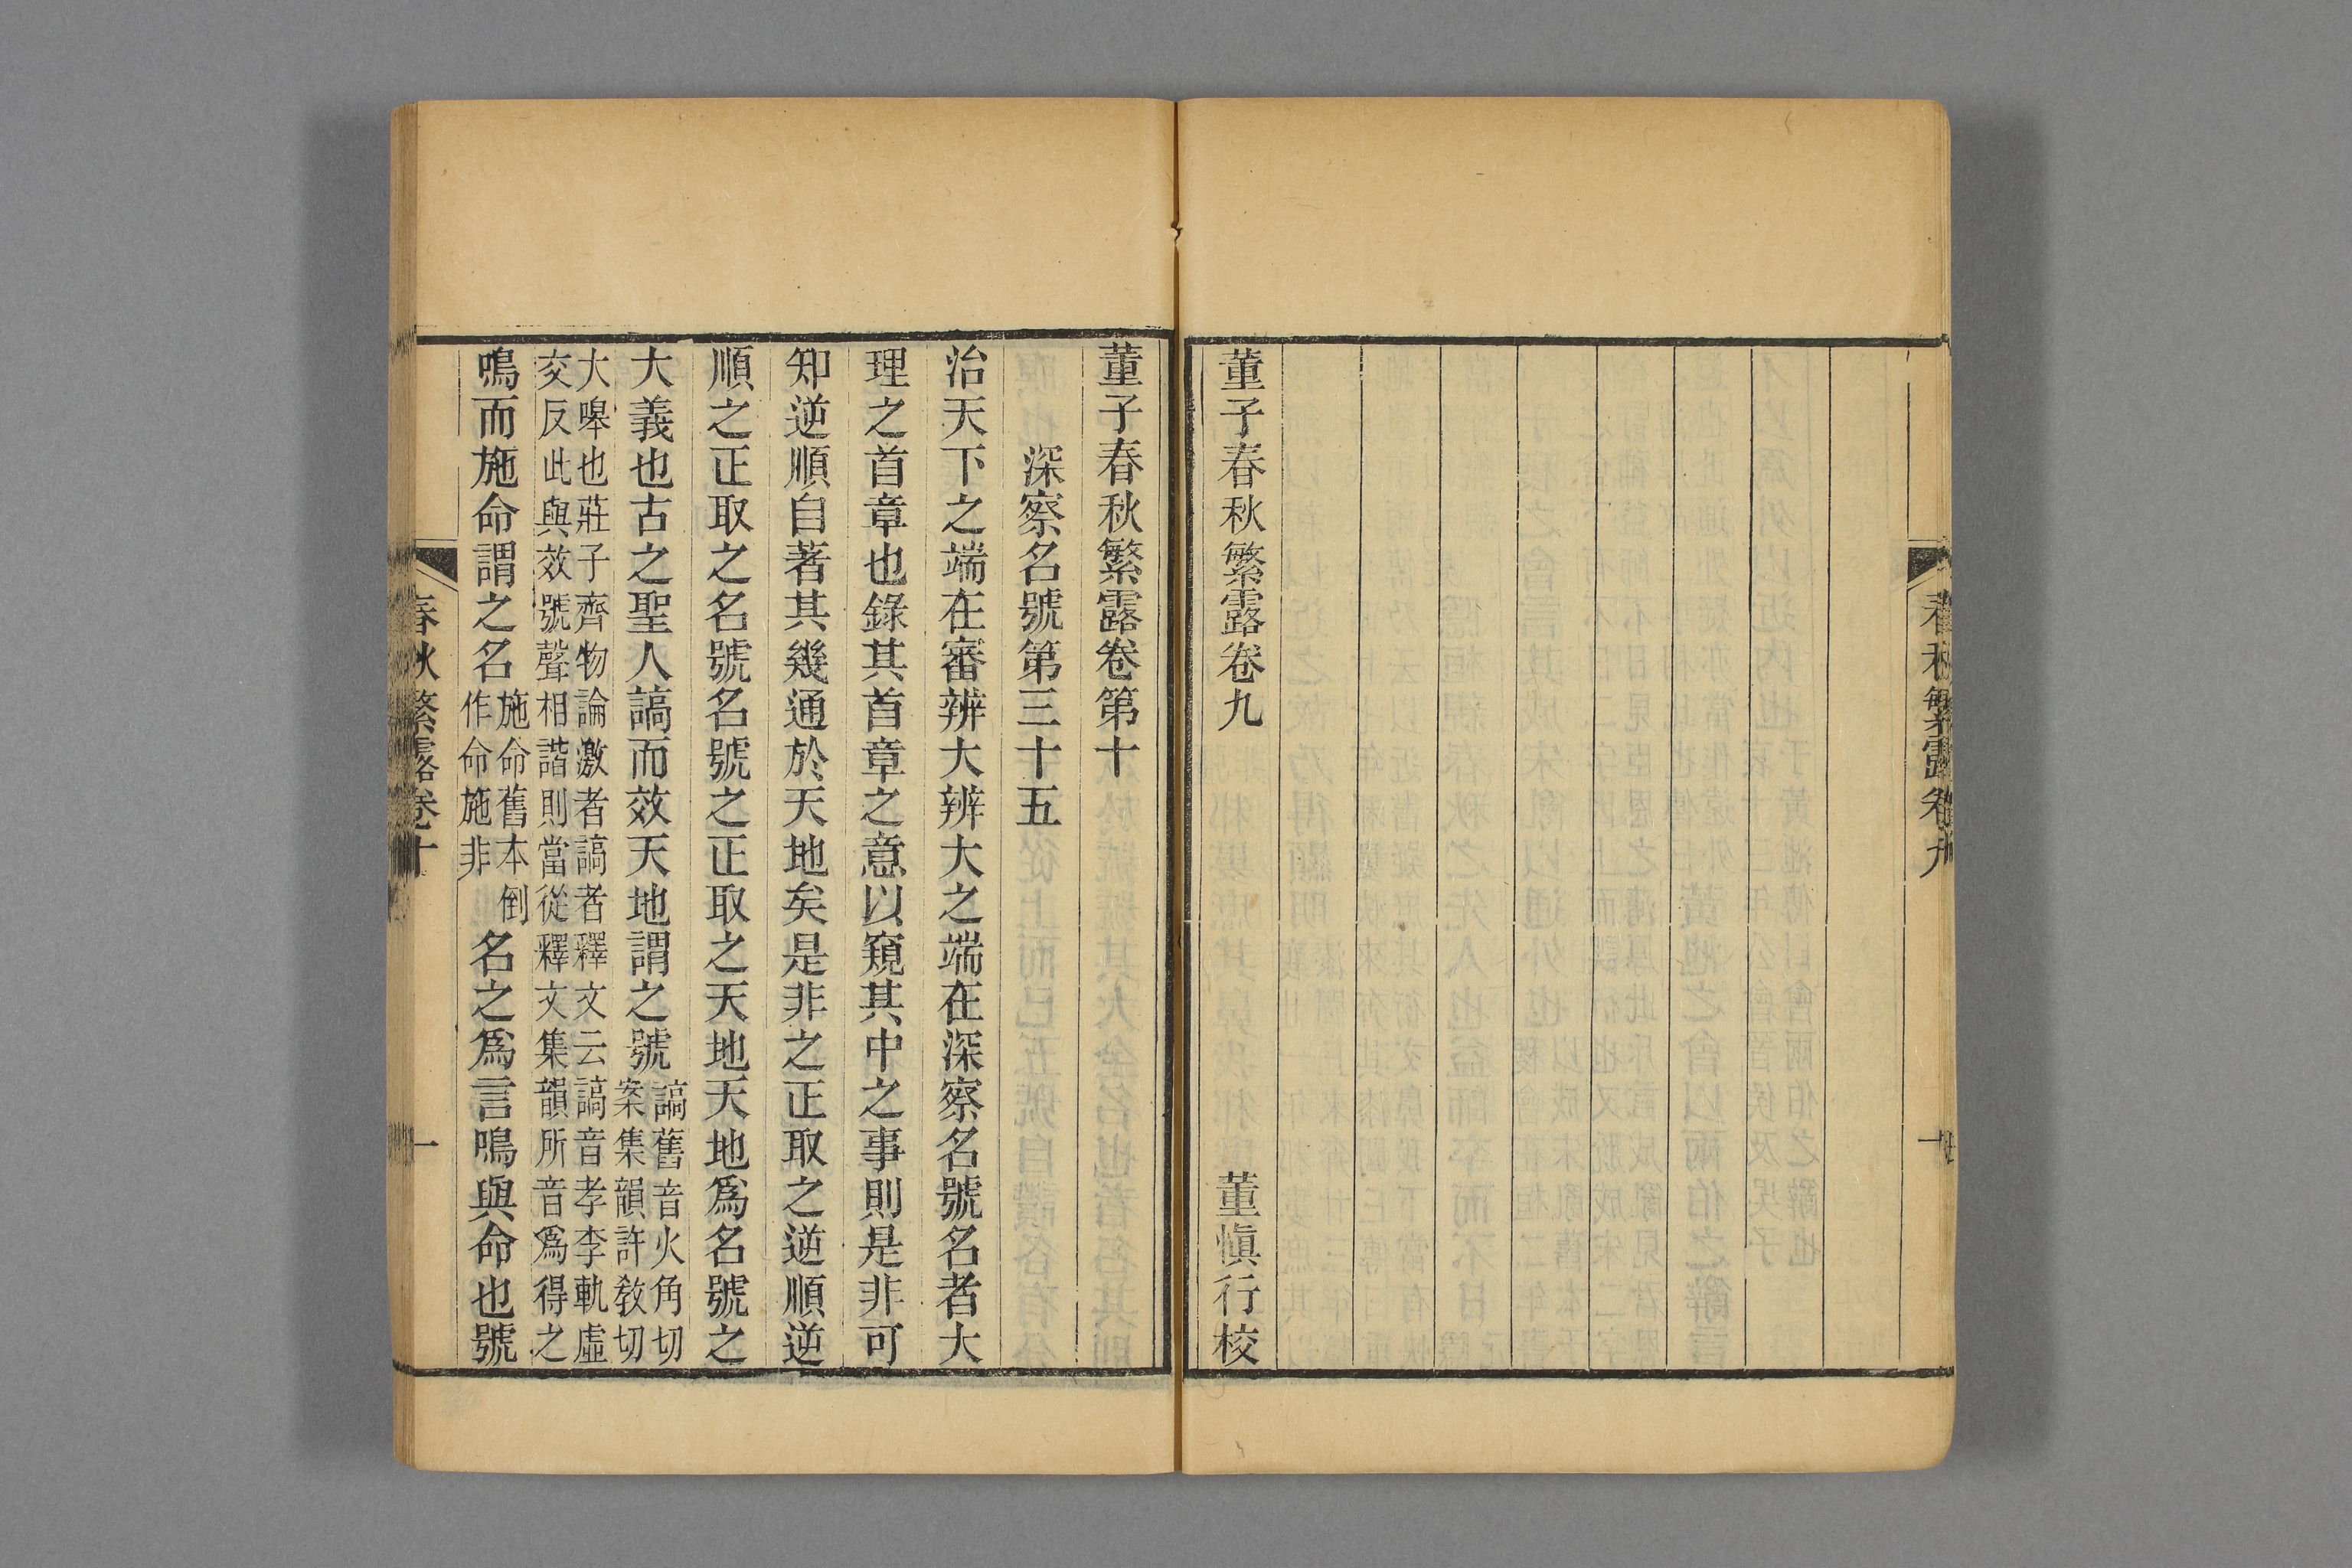 春秋繁露卷九
董子春秋繁露卷九　董愼行校
董子春秋繁露卷第十
深察名號第三十五
治天下之端在審辨大辨大之端在深察名號名者大
理之首章也錄其首章之意以窺其中之事則是非可
知逆順自著其幾通於天地矣是非之正取之逆順逆
順之正取之名號名號之正取之天地天地爲名號之
大義也古之聖人謞而效天地謂之號
謞舊音火角切
案集韻許敎切
大嘷也莊子齊物論激者謞者釋文云謞音孝李軌虛
交反此與效號聲相諧則當從釋文集韻所音爲得之
鳴而施命謂之名
施命舊本倒
作命施非
名之爲言鳴與命也號
春秋繁露卷十
一